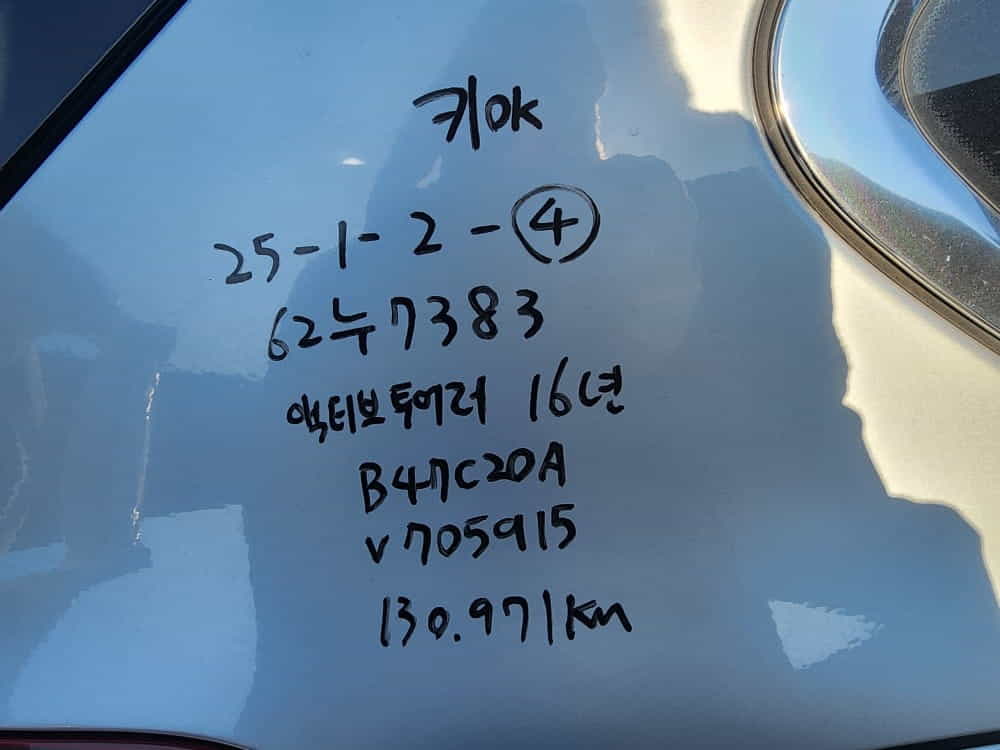 키OK
25-1-2-④
62누7383
액티브투어러 16년
B47C20A
V705915
130.971Km